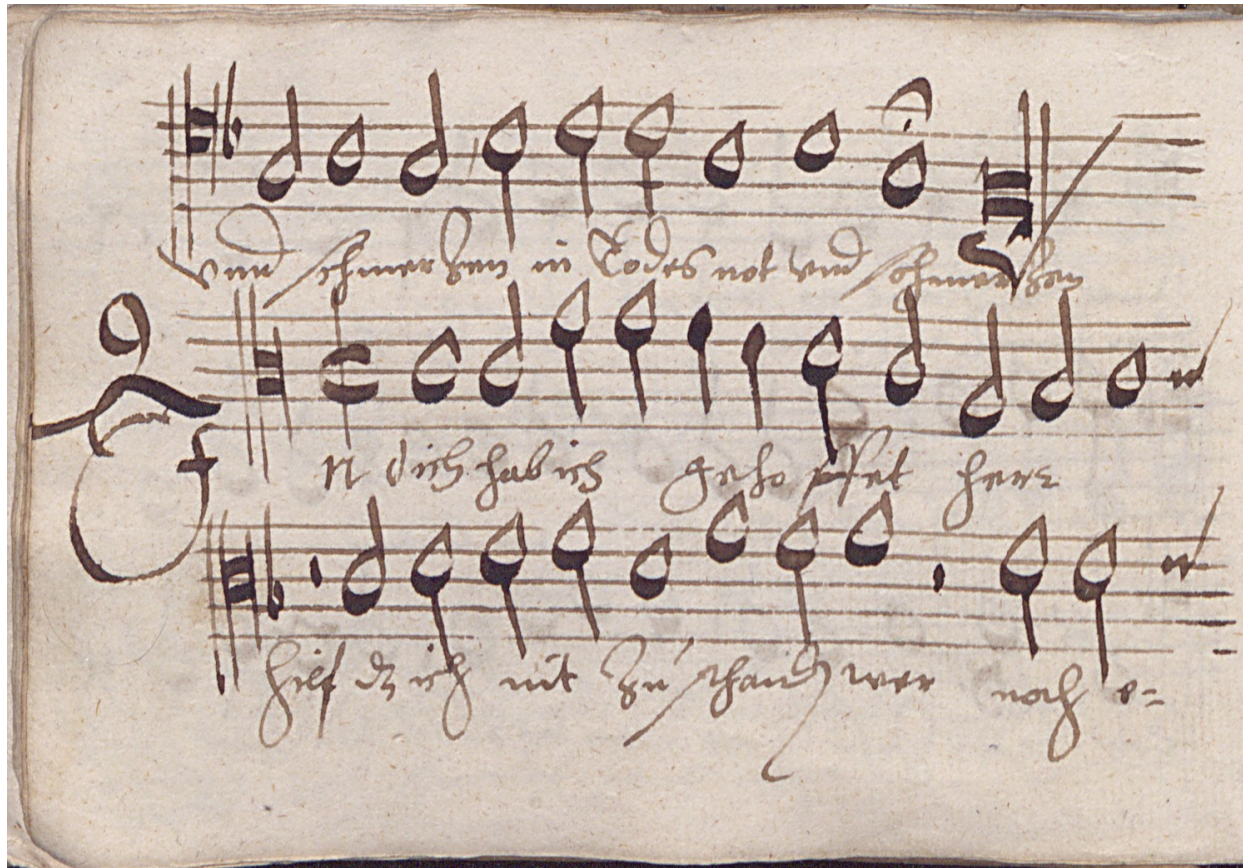 vnnd schmertzen in Todes not vnd schmertzen
In dich hab ich gehoffet herr
hilf dz ich nit zu schand wer noch e=